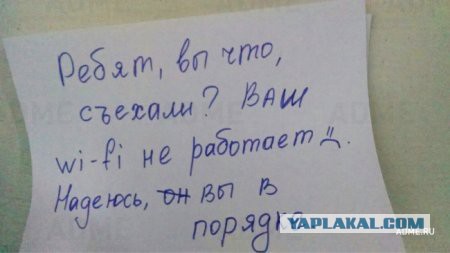 Ребят, вы что,
съехали? ВАШ
wi-fi не работает
Надеюсь, он вы в
YAPLAKAL.COM
ADME.RU